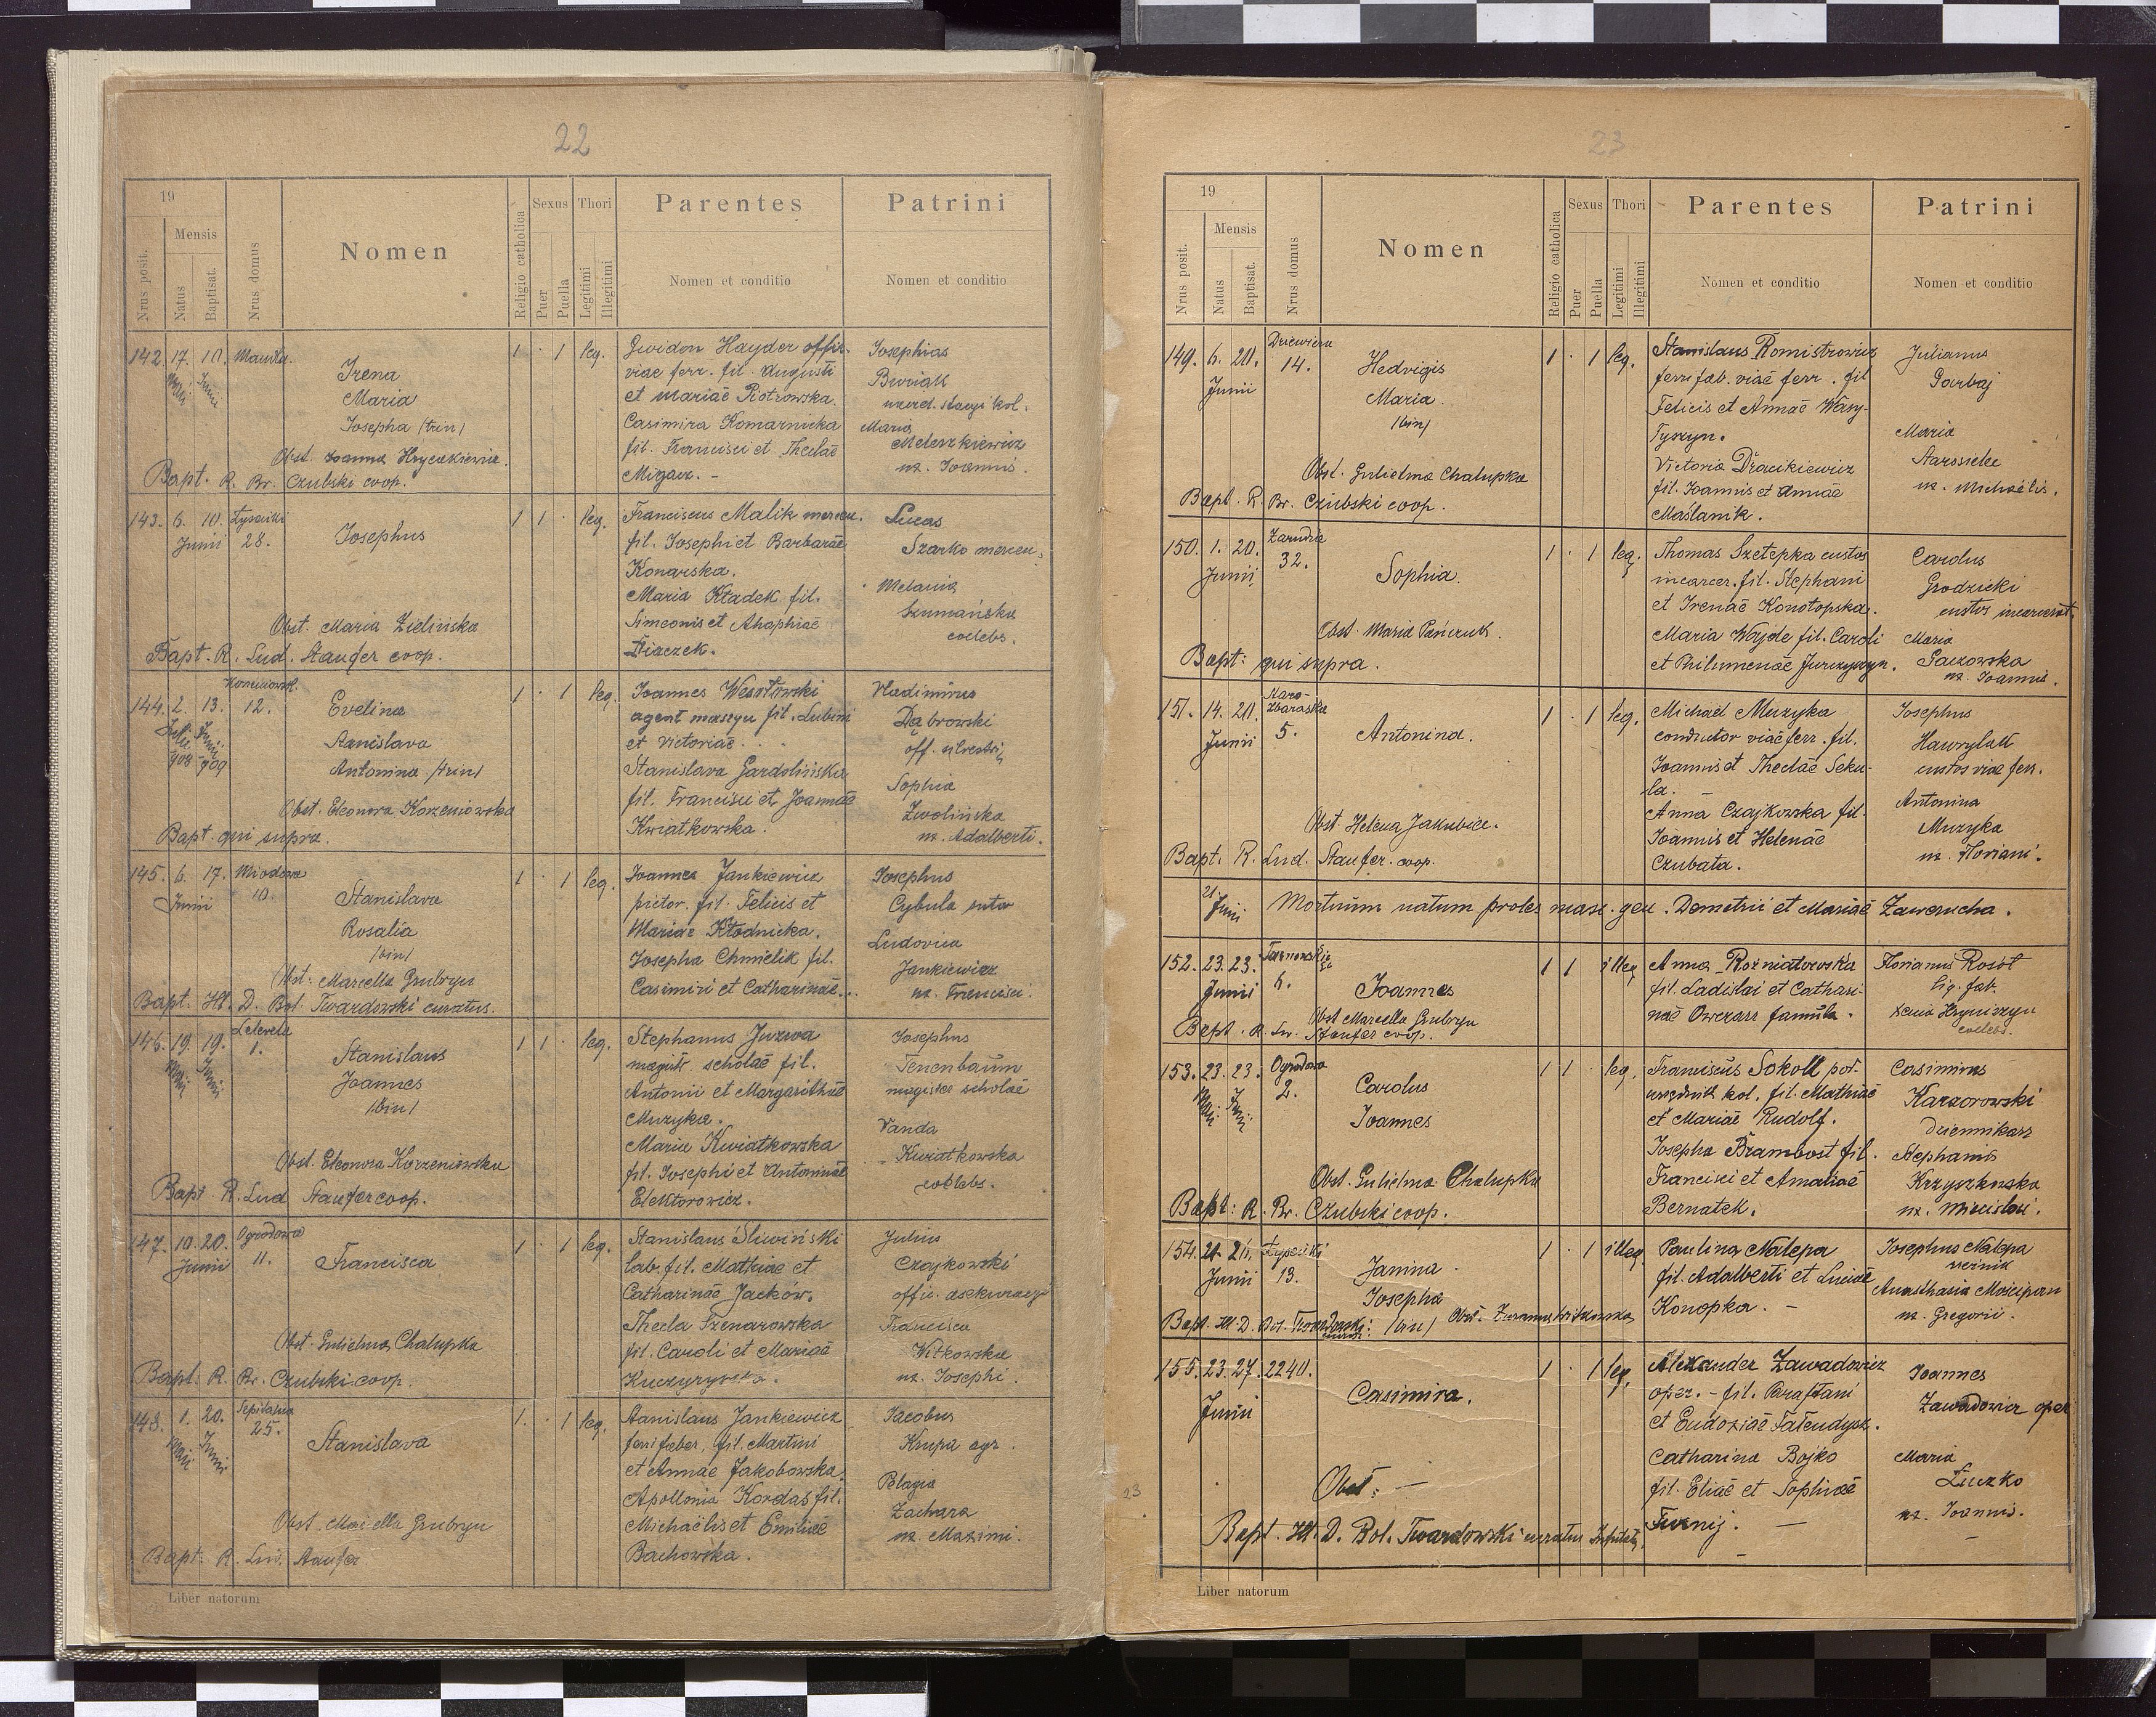 22
19
Mensis
Nrus posit.
Natus
Baptisat.
Nrus domus
Nomen
Religio catholica
Sexus
Puer
Puella
Thori
Legitimi
Illegitimi
Parentes
Nomen et conditio
Patrini
Nomen et conditio
142 17. 10.
Irena
Maria
Josepha (trin)
Obst. Joanna
Bapt. R. Br. Czubski coop.
1 · 1 leg.
Gwidon Hayder offic.
viae ferr. fil. Augusti
et Mariae Piotrowska.
Casimira Komarnicka
fil. Francisci et Theclae
Josephus
Maria
uz. Joannis.
143. 6. 10.
Junii 28.
Josephus
Obst. Maria Zielińska
Bapt. R. Lud. Staufer coop.
1 1 · leg.
Franciscus Malik mercen.
fil. Josephi et Barbarae
Konarska.
Maria Kładek fil.
Simeonis et Ahaphiae
Lucas
Szarko mercen.
Melania
Szumańska
coelebs.
144. 2. 13. 12.
Julii Junii
908 909
Evelina
Stanislava
Antonina (trin)
Obst. Eleonora Korzeniowska
Bapt. qui supra.
1 · 1 leg.
Joannes Wesołowski
agent maszyn fil.
et Victoriae
Stanislava Gardolińska
fil. Francisci et Joannae
Kwiatkowska.
Vladimirus
Dąbrowski
Sophia
Zwolińska
uz. Adalberti.
145. 6. 17. Miodowa
Junii 10.
Stanislava
Rosalia
(bin)
Obst. Marcella Grubryn
Bapt. Ill. D. Bol. Twardowski curatus.
1 · 1 leg.
Joannes Jankiewicz
pictor, fil. Felicis et
Mariae Kłodnicka.
Josepha Chmielik fil.
Casimiri et Catharinae...
Josephus
Cybula sutor
Ludovica
Jankiewicz
uz. Francisci.
146. 19. 19. Lelewela
Maii Junii 1.
Stanislaus
Joannes
(bin)
Obst. Eleonora Korzeniowska
Bapt. R. Lud Staufer coop.
1 1 · leg.
Stephanus Juzwa
magistr scholae fil.
Antonii et Margarithae
Muzyka.
Maria Kwiatkowska
fil. Josephi et Antoninae
Elektorowicz.
Josephus
Tenenbaum
magister scholae
Vanda
Kwiatkowska
coelebs.
147. 10. 20. Ogrodowa
Junii 11.
Francisca
Obst. Gulielma Chalupka
Bapt. R. Br. Czubski coop.
1 · 1 leg.
Stanislaus Śliwiński
lab. fil. Mathiae et
Catharinae Jacków.
Thecla Szenarowska
fil. Caroli et Mariae
Julius
Czajkowski
offic. asekuracyi
Francisca
Witkowska
uz. Josephi.
148. 1. 20.
Maii Junii 25.
Stanislava
Obst. Marcella Grubryn
Bapt. R. Lud. Staufer
1. · 1 leg.
Stanislaus Jankiewicz
ferrifaber, fil. Martini
et Annae Jakobowska.
Apollonia Kordas fil.
Michaëlis et Emiliae
Bachowska.
Jacobus
Krupa agr.
Pelagia
Zachara
uz. Maximi.
Liber natorum
23
19
Mensis
Nrus posit.
Natus
Baptisat.
Nrus domus
Nomen
Religio catholica
Sexus
Puer
Puella
Thori
Legitimi
Illegitimi
Parentes
Nomen et conditio
Patrini
Nomen et conditio
149. 6. 20. 14.
Junii
Hedvigis
Maria.
(bin)
Obst. Gulielma Chalupka
Bapt. R. Br. Czubski coop.
1 · 1 leg.
Stanislaus Romistrowicz
ferrifab. viae ferr. fil
Felicis et Annae Wasy-
Tyszyn.
Victoria
fil. Joannis et Annae
Maślanik.
Julianus
Garbaj
Maria
uz. Michaëlis.
150. 1. 20. Zarudzie
Junii 32.
Sophia.
Obst. Maria Pańczuk.
Bapt: qui supra.
1 · 1 leg.
Thomas Szetepka custos
incarcer. fil. Stephani
et Irenae Konotopska.
Maria Wajde fil. Caroli
et Philumenae
Carolus
Grodzicki
custos incarcerat.
Maria
Gaczowska
uz. Joannis.
151. 14. 20. Staro-
zbaraska
Junii 5.
Antonina.
Obst. Helena Jakubice.
Bapt. R. Lud. Staufer. coop.
1 · 1 leg.
Michaël Muzyka
conductor viae ferr. fil.
Joannis et Theclae Seku-
la. —
Anna Czajkowska fil.
Joannis et Helenae
Czubata.
Josephus
Hawrylak
custos viae ferr.
Antonina
Muzyka
uz. Floriani.
21
Junii
Mortuum natum proles masc. gen. Demetrii et Mariae Zawerucha.
152. 23. 23.
Junii 6.
Joannes
Obst Marcella Grubryn
Bapt. R. Lu. Staufer coop.
1 1 illeg
Anna Rożniatowska
fil. Ladislai et Cathari-
nae Owczarz famula.
Florianus Rosół
lig. fab.
Xenia Hryniszyn
coelebs.
153. 23. 23. Ogrodowa
Maii Junii 2.
Carolus
Joannes
Obst. Gulielma Chalupka
Bapt: R. Br. Czubski coop.
1 1 · leg.
Franciscus Sokoll pod-
urzędnik kol. fil. Mathiae
et Mariae Rudolf.
Josepha Brambost fil.
Francisci et Amaliae
Bernatek.
Casimirus
Karzorowski
Dziennikarz
Stephania
Krzyszkowska
uz. Miecislai.
154. 21. 26.
Junii 13.
Janina.
Josepha
(bin)
Bapt. Ill. D. Bol. Twardowski
1 · 1 illeg
Paulina Nalepa
fil. Adalberti et Luciae
Konopka. —
Josephus Nalepa
Anasthasia Mościpan
uz. Gregorii.
155. 23. 27. 2240.
Junii
Casimira.
Obst: —
Bapt. Ill. D. Bol. Twardowski curatus
1 · 1 leg.
Alexander Zawadowicz
oper. – fil.
et Eudoxiae
Catharina Bojko
fil. Eliae et Sophiae
Joannes
Zawadowicz oper
Maria
Łuczko
uz. Joannis.
23
Liber natorum